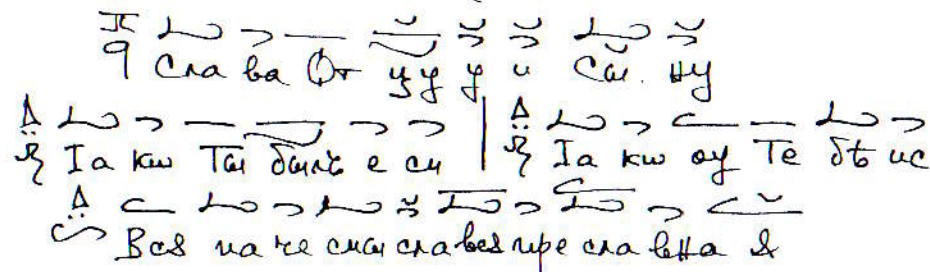 Сла ва От цу у и Сы. ну
Іа кѡ Ты былъ е си | Іа кѡ оу Те бѣ ис
Вся па че смы сла вся пре сла вна я